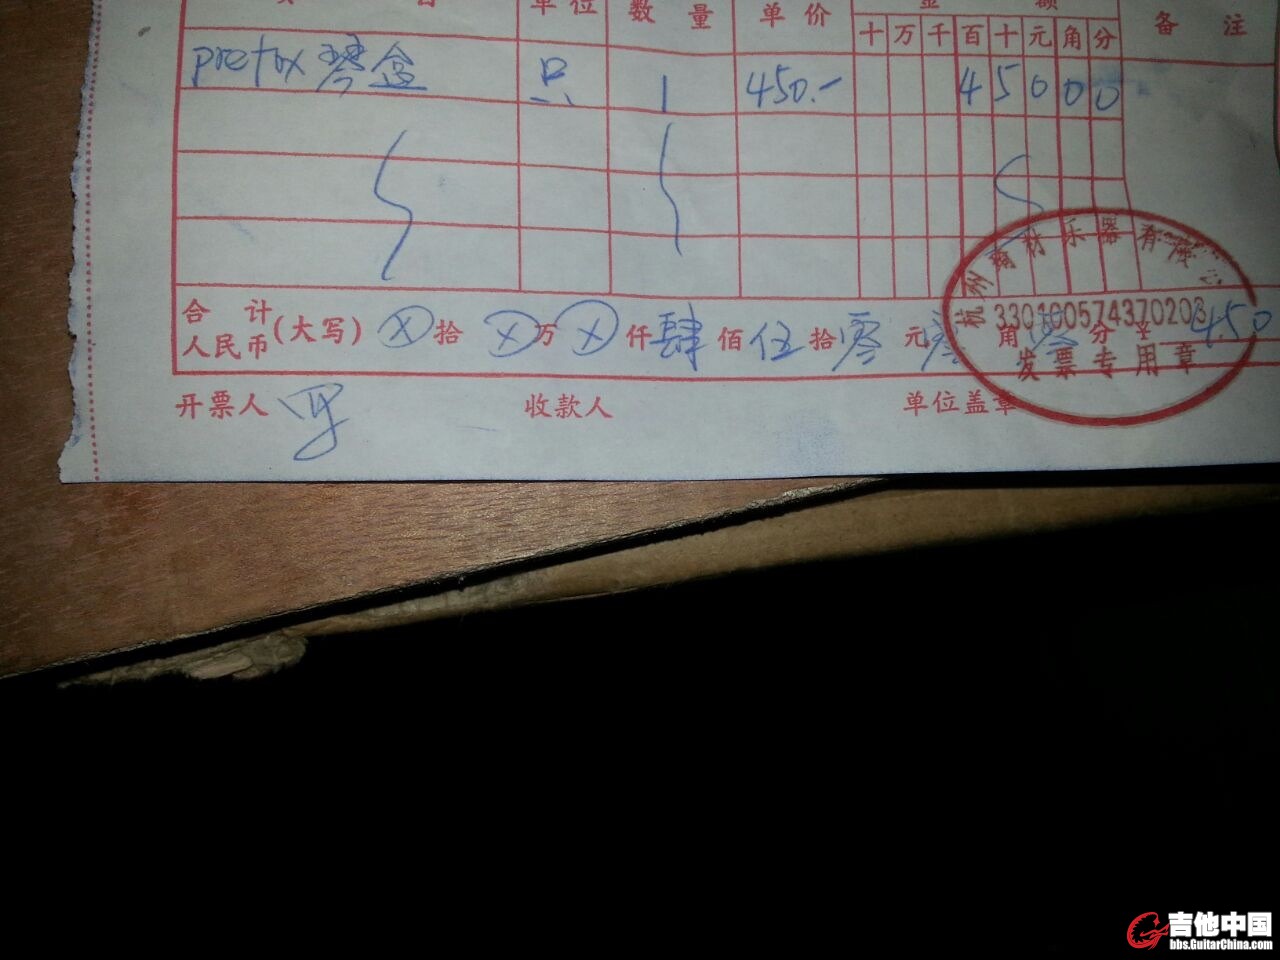 单位 数量 单价 金额 备注
十 万 千 百 十 元 角 分
琴盒 只 1 450.- 4 5 0 0 0
合计
人民币(大写) ⊗拾 ⊗万 ⊗仟 肆佰 伍拾 零元 零角 零分 ¥ 450
杭州 材乐器有限公
330100574370203
发票专用章
开票人 收款人 单位盖章
吉他中国
bbs.GuitarChina.com